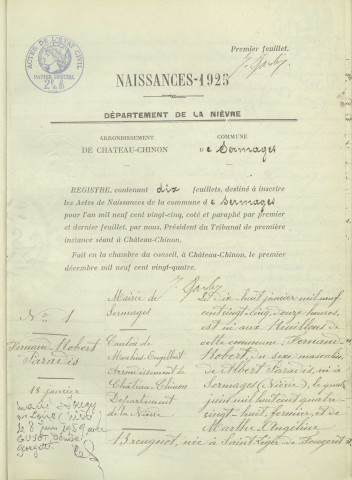 ACTES DE L'ÉTAT CIVIL
PAPIER SPÉCIAL
Premier feuillet.
NAISSANCES-1925
DÉPARTEMENT DE LA NIÈVRE
ARRONDISSEMENT
DE CHATEAU-CHINON
COMMUNE
De Sermages
REGISTRE, contenant dix feuillets, destiné à inscrire
les Actes de Naissances de la commune de Sermages
pour l'an mil neuf cent vingt-cinq, coté et paraphé par premier
et dernier feuillet, par nous, Président du Tribunal de première
instance séant à Château-Chinon.
Fait en la chambre du conseil, à Château-Chinon, le premier
décembre mil neuf cent vingt-quatre.
No 1
Robert
Paradis
18 janvier
Marié à
le 8 juin 1959 avec
GUYOT Denise
Mairie de
Sermages
Canton de
Moulins Engilbert
Arrondissement de
Château-Chinon
Département
de la Nièvre
Le dix huit janvier mil neuf
cent vingt-cinq, douze heures,
est né aux
celle commune
Robert, du sexe masculin,
de Albert Paradis, né à
Sermages (Nièvre), le quatre
juin mil huit cent quatre-
vingt-huit, fermier, et de
Marthe Angéline
née à Saint Léger de Fougeret